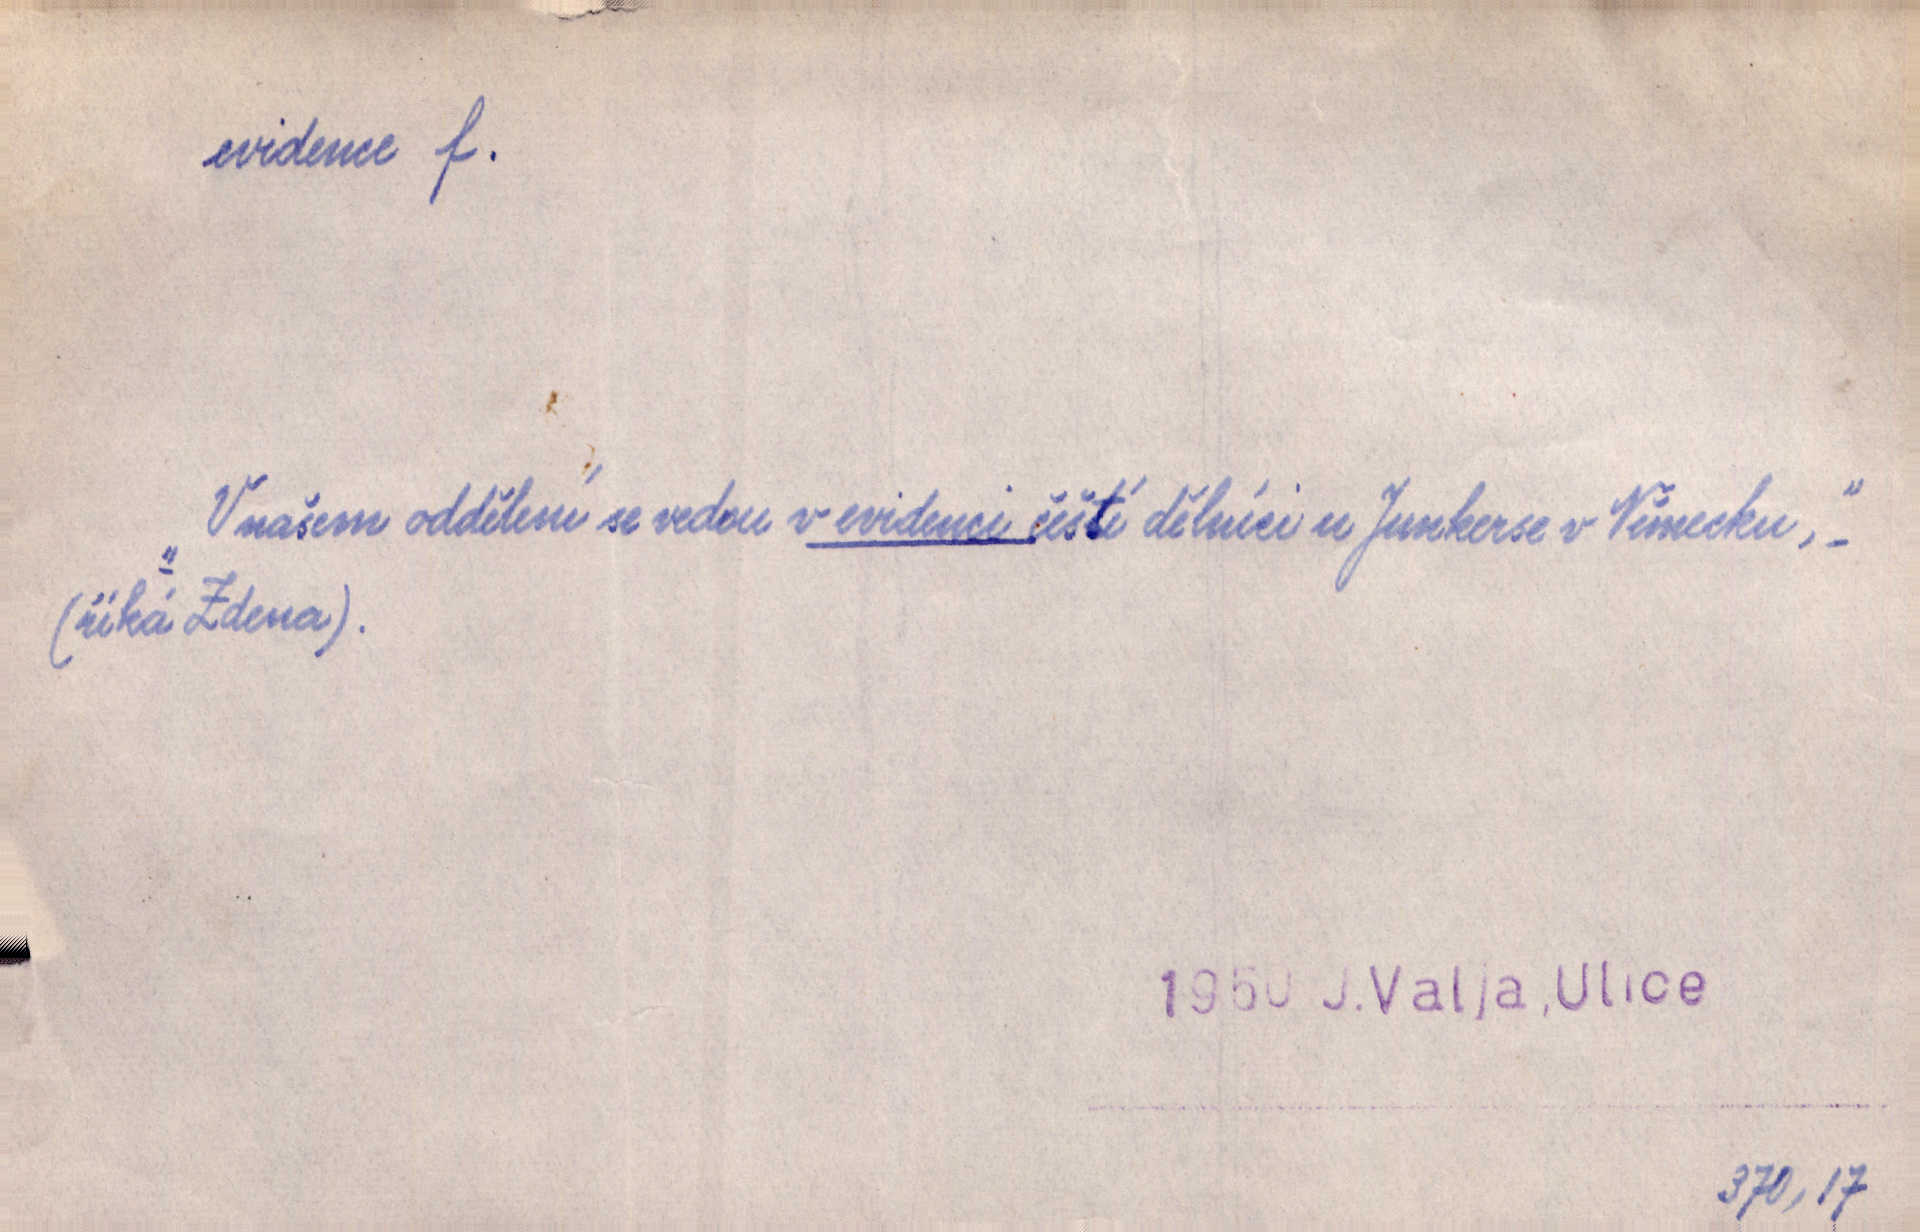 evidence f.
„V našem oddělení se vedou v evidenci čeští dělníci u Junkerse v Německu,“ -
(říká Zdena).
1950 J.Valja,Ulice
370, 17